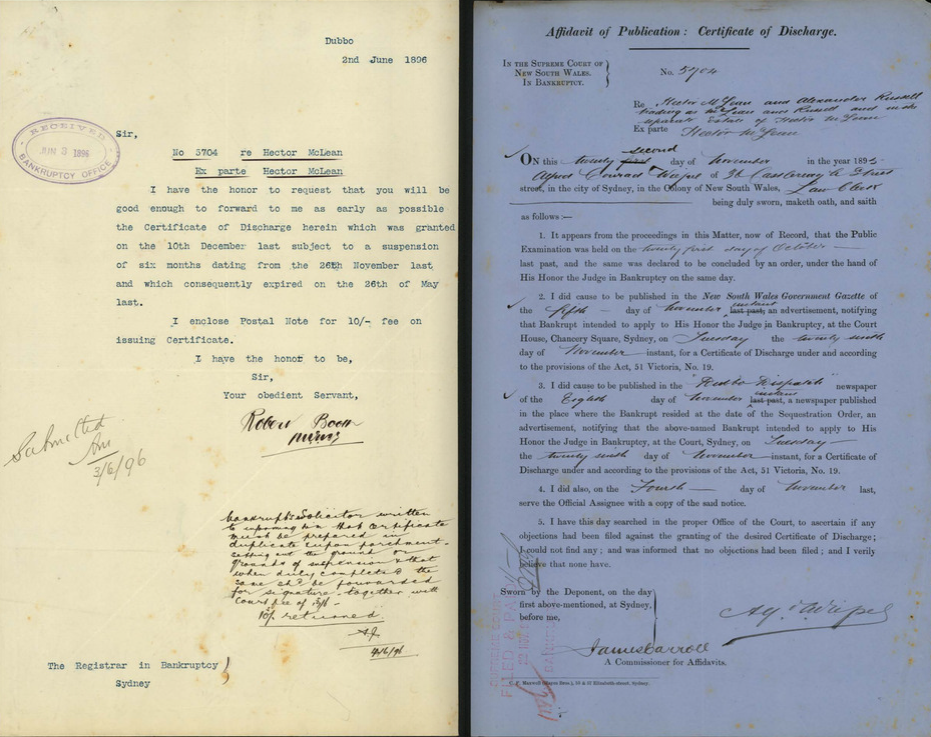 Dubbo
2nd June 1896
RECEIVED
JUN 3 1896
BANKRUPTCY OFFICE
Sir,
No 5704 re Hector McLean
Ex parte Hector McLean
I have the honor to request that you will be
good enough to forward to me as early as possible
the Certificate of Discharge herein which was granted
on the 10th December last subject to a suspension
of six months dating from the 26th November last
and which consequently expired on the 26th of May
last.
I enclose Postal Note for 10/- fee on
issuing Certificate.
I have the honor to be,
Sir,
Your obedient Servant,
Robert Booth
Submitted
3/6/96
Bankrupt's Solicitor written
to informing him that certificate
must be prepared in
duplicate upon parchment
setting out the ground or
grounds of suspension & that
when duly completed the
same shd be forwarded
for signature together with
Court fee of
10/- returned
4/6/96
The Registrar in Bankruptcy
Sydney
Affidavit of Publication: Certificate of Discharge.
IN THE SUPREME COURT OF
NEW SOUTH WALES.
IN BANKRUPTCY.
No. 5704
Re Hector McLean and Alexander Russell
trading as McLean and Russell and in the
separate Estate of Hector McLean
Ex parte Hector McLean
ON this twenty first second day of November in the year 1895
Alfred Conrad Wiepel of Castlereagh Street
street, in the city of Sydney, in the Colony of New South Wales, Law Clerk
being duly sworn, maketh oath, and saith
as follows:—
1. It appears from the proceedings in this Matter, now of Record, that the Public
Examination was held on the twenty first day of October
last past, and the same was declared to be concluded by an order, under the hand of
His Honor the Judge in Bankruptcy on the same day.
2. I did cause to be published in the New South Wales Government Gazette of
the fifth day of November last past, instant an advertisement, notifying
that Bankrupt intended to apply to His Honor the Judge in Bankruptcy, at the Court
House, Chancery Square, Sydney, on Tuesday the twenty sixth
day of November instant, for a Certificate of Discharge under and according
to the provisions of the Act, 51 Victoria, No. 19.
3. I did cause to be published in the "Dubbo Dispatch" newspaper
of the Eighth day of November last past, instant a newspaper published
in the place where the Bankrupt resided at the date of the Sequestration Order, an
advertisement, notifying that the above-named Bankrupt intended to apply to His
Honor the Judge in Bankruptcy, at the Court, Sydney, on Tuesday
the twenty sixth day of November instant, for a Certificate of
Discharge under and according to the provisions of the Act, 51 Victoria, No. 19.
4. I did also, on the Fourth day of November last,
serve the Official Assignee with a copy of the said notice.
5. I have this day searched in the proper Office of the Court, to ascertain if any
objections had been filed against the granting of the desired Certificate of Discharge;
I could not find any; and was informed that no objections had been filed; and I verily
believe that none have.
Sworn by the Deponent, on the day
first above-mentioned, at Sydney,
before me,
James Carroll
A Commissioner for Affidavits.